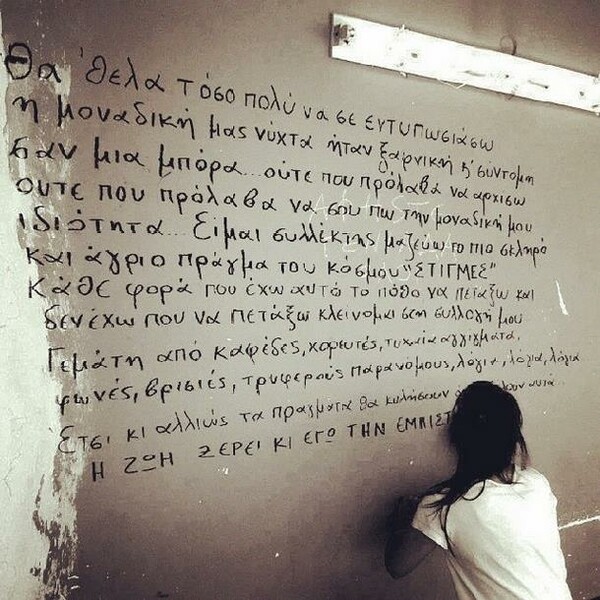 Θα 'θελα τόσο πολύ να σε εντυπωσιάσω
η μοναδική μας νύχτα ήταν ξαφνική κ' σύντομη
σαν μια μπόρα... ούτε που πρόλαβα να αρχίσω
ούτε που πρόλαβα να σου πω την μοναδική μου
ιδιότητα... Είμαι συλλέκτης μαζεύω το πιο σκληρό
και άγριο πράγμα του κόσμου "ΣΤΙΓΜΕΣ"
Κάθε φορά που έχω αυτό το πόθο να πετάξω και
δεν έχω που να πετάξω κλείνομαι στη συλλογή μου
Γεμάτη από καφέδες, χορευτές, τυχαία αγγίγματα,
φωνές, βρισιές, τρυφερούς παρανόμους, λόγια, λόγια, λόγια
Έτσι κι αλλιώς τα πράγματα θα κυλήσουν
Η ΖΩΗ ΞΕΡΕΙ ΚΙ ΕΓΩ ΤΗΝ